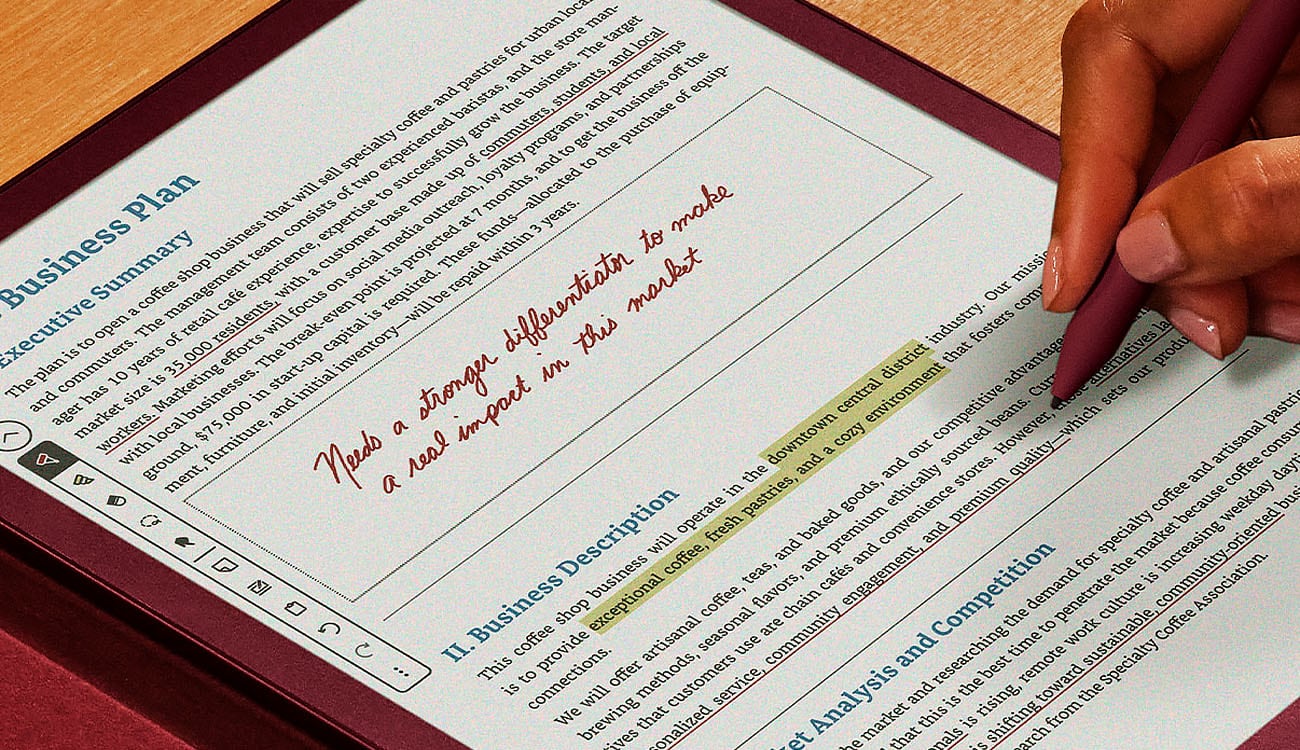 Business Plan
Executive Summary
The plan is to open a coffee shop business that will sell specialty coffee and pastries for urban
and commuters. The management team consists of two experienced baristas, and the store man-
ager has 10 years of retail café experience, expertise to successfully grow the business. The target
market size is 35,000 residents, with a customer base made up of commuters, students, and local
workers. Marketing efforts will focus on social media outreach, loyalty programs, and partnerships
with local businesses. The break-even point is projected at 7 months, and to get the business off the
ground, $75,000 in start-up capital is required. These funds—allocated to the purchase of equip-
ment, furniture, and initial inventory—will be repaid within 3 years.
Needs a stronger differentiator to make
a real impact in this market
II. Business Description
This coffee shop business will operate in the downtown central district industry. Our
is to provide exceptional coffee, fresh pastries, and a cozy environment that fosters
connections.
We will offer artisanal coffee, teas, and baked goods, and our competitive
brewing methods, seasonal flavors, and premium ethically sourced beans.
that customers use are chain cafés and convenience stores. However,
service, community engagement, and premium quality—which sets our
Analysis and Competition
market and researching the demand for specialty coffee and artisanal
that this is the best time to penetrate the market because coffee
is rising, remote work culture is increasing weekday
is shifting toward sustainable, community-oriented
from the Specialty Coffee Association.